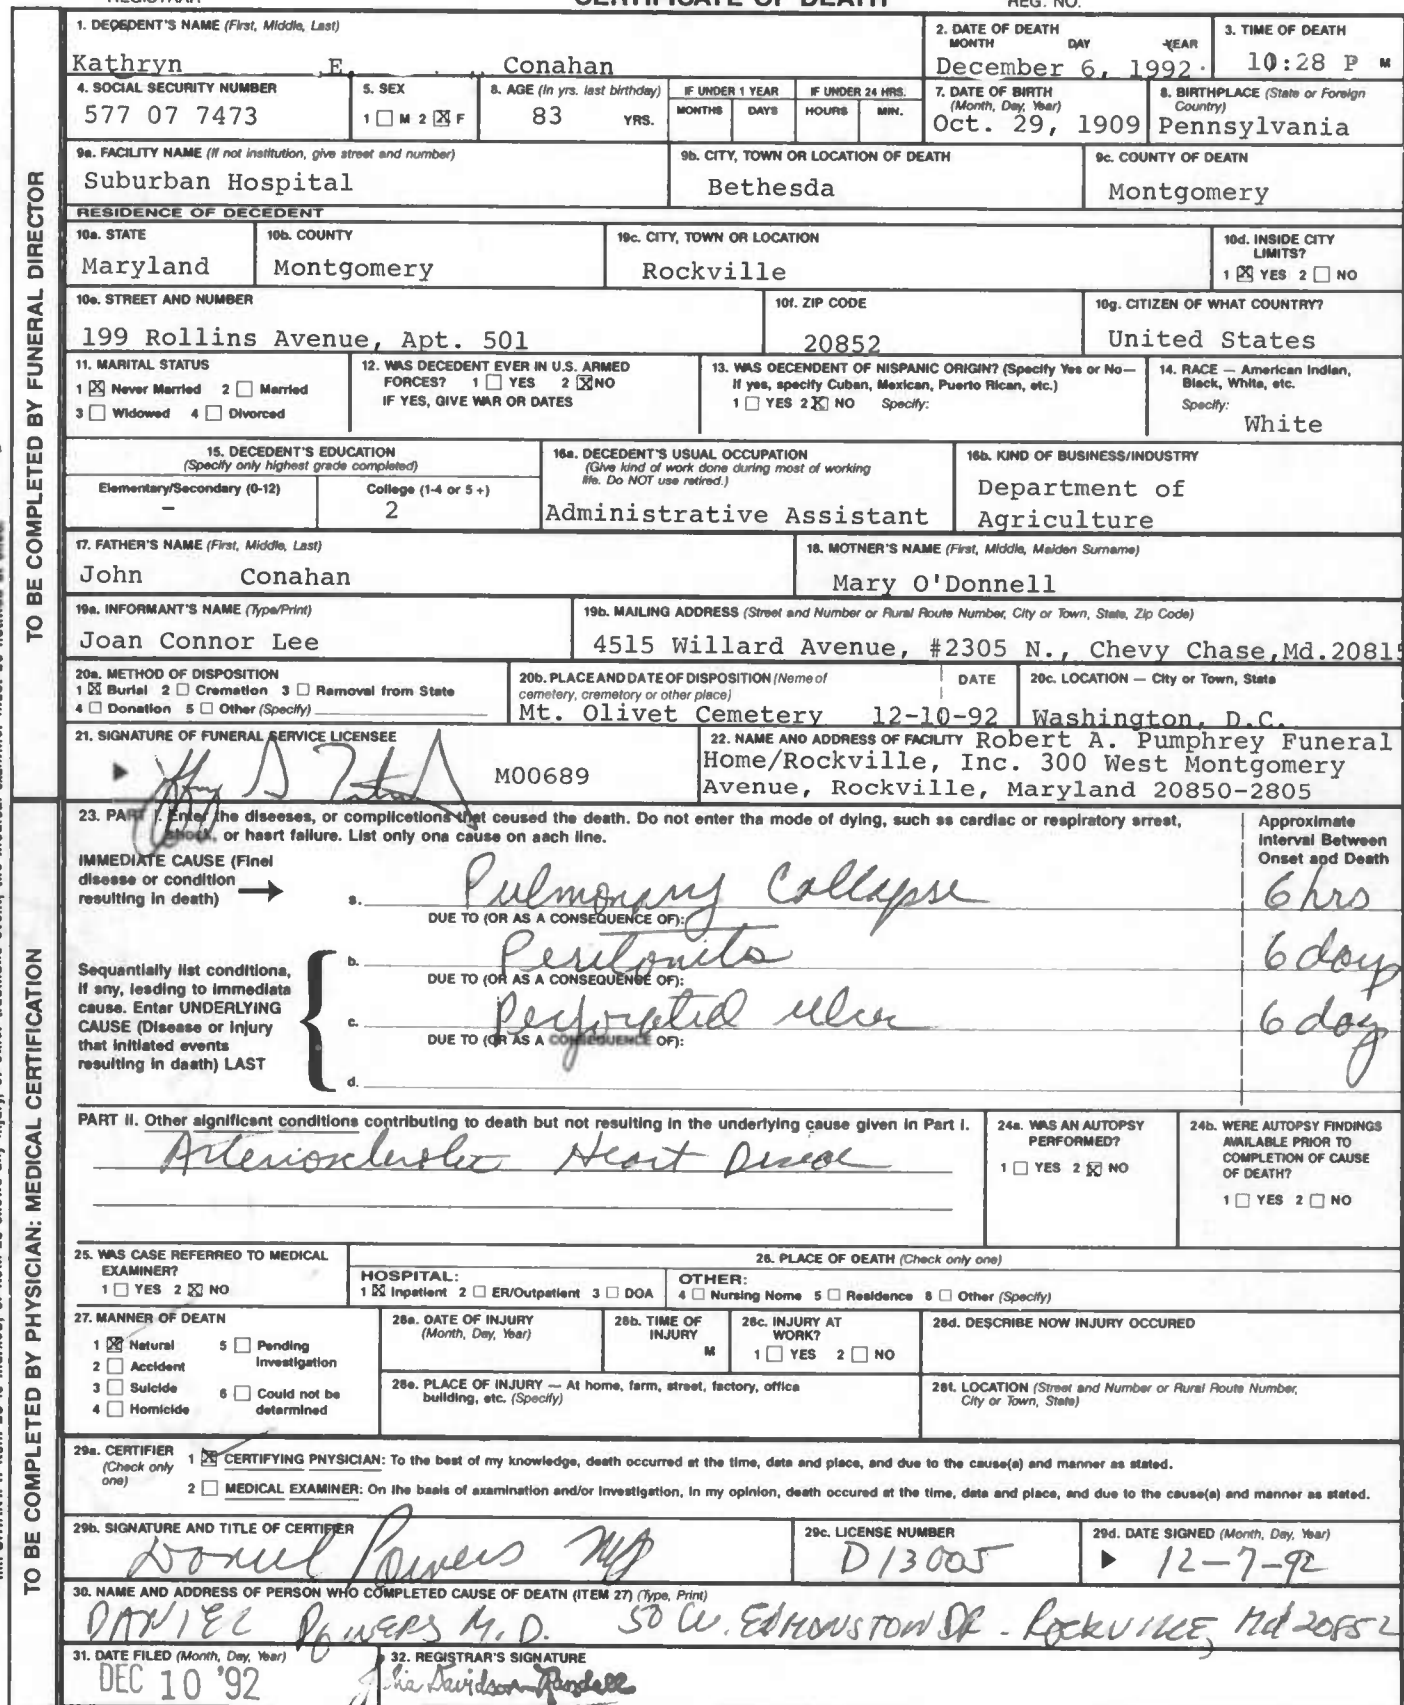 REGISTRAR CERTIFICATE OF DEATH REG. NO.
1. DECEDENT'S NAME (First, Middle, Last)
Kathryn E. Conahan
2. DATE OF DEATH
MONTH DAY YEAR
December 6, 1992
3. TIME OF DEATH
10:28 P M
4. SOCIAL SECURITY NUMBER
577 07 7473
5. SEX
1 ☐ M 2 ☒ F
8. AGE (In yrs. last birthday)
83 YRS.
IF UNDER 1 YEAR
MONTHS DAYS
IF UNDER 24 HRS.
HOURS MIN.
7. DATE OF BIRTH
(Month, Day, Year)
Oct. 29, 1909
8. BIRTHPLACE (State or Foreign
Country)
Pennsylvania
9a. FACILITY NAME (If not institution, give street and number)
Suburban Hospital
9b. CITY, TOWN OR LOCATION OF DEATH
Bethesda
9c. COUNTY OF DEATH
Montgomery
RESIDENCE OF DECEDENT
10a. STATE
Maryland
10b. COUNTY
Montgomery
10c. CITY, TOWN OR LOCATION
Rockville
10d. INSIDE CITY
LIMITS?
1 ☒ YES 2 ☐ NO
10e. STREET AND NUMBER
199 Rollins Avenue, Apt. 501
10f. ZIP CODE
20852
10g. CITIZEN OF WHAT COUNTRY?
United States
11. MARITAL STATUS
1 ☒ Never Married 2 ☐ Married
3 ☐ Widowed 4 ☐ Divorced
12. WAS DECEDENT EVER IN U.S. ARMED
FORCES? 1 ☐ YES 2 ☒ NO
IF YES, GIVE WAR OR DATES
13. WAS DECENDENT OF NISPANIC ORIGIN? (Specify Yes or No—
If yes, specify Cuban, Mexican, Puerto Rican, etc.)
1 ☐ YES 2 ☒ NO Specify:
14. RACE — American Indian,
Black, White, etc.
Specify:
White
15. DECEDENT'S EDUCATION
(Specify only highest grade completed)
Elementary/Secondary (0-12)
–
College (1-4 or 5+)
2
16a. DECEDENT'S USUAL OCCUPATION
(Give kind of work done during most of working
life. Do NOT use retired.)
Administrative Assistant
16b. KIND OF BUSINESS/INDUSTRY
Department of
Agriculture
17. FATHER'S NAME (First, Middle, Last)
John Conahan
18. MOTHER'S NAME (First, Middle, Maiden Surname)
Mary O'Donnell
19a. INFORMANT'S NAME (Type/Print)
Joan Connor Lee
19b. MAILING ADDRESS (Street and Number or Rural Route Number, City or Town, State, Zip Code)
4515 Willard Avenue, #2305 N., Chevy Chase,Md.20815
20a. METHOD OF DISPOSITION
1 ☒ Burial 2 ☐ Cremation 3 ☐ Removal from State
4 ☐ Donation 5 ☐ Other (Specify)
20b. PLACE AND DATE OF DISPOSITION (Name of DATE
cemetery, crematory or other place)
Mt. Olivet Cemetery 12-10-92
20c. LOCATION — City or Town, State
Washington, D.C.
21. SIGNATURE OF FUNERAL SERVICE LICENSEE
M00689
22. NAME AND ADDRESS OF FACILITY Robert A. Pumphrey Funeral
Home/Rockville, Inc. 300 West Montgomery
Avenue, Rockville, Maryland 20850-2805
TO BE COMPLETED BY FUNERAL DIRECTOR
23. PART I. Enter the diseases, or complications that caused the death. Do not enter the mode of dying, such as cardiac or respiratory arrest,
shock, or heart failure. List only one cause on each line.
Approximate
Interval Between
Onset and Death
IMMEDIATE CAUSE (Final
disease or condition
resulting in death)
a. Pulmonary Collapse 6 hrs
DUE TO (OR AS A CONSEQUENCE OF):
b. Peritonitis 6 days
DUE TO (OR AS A CONSEQUENCE OF):
c. Perforated ulcer 6 day
DUE TO (OR AS A CONSEQUENCE OF):
d.
Sequentially list conditions,
if any, leading to immediate
cause. Enter UNDERLYING
CAUSE (Disease or injury
that initiated events
resulting in death) LAST
PART II. Other significant conditions contributing to death but not resulting in the underlying cause given in Part I.
Arteriosclerotic Heart Disease
24a. WAS AN AUTOPSY
PERFORMED?
1 ☐ YES 2 ☒ NO
24b. WERE AUTOPSY FINDINGS
AVAILABLE PRIOR TO
COMPLETION OF CAUSE
OF DEATH?
1 ☐ YES 2 ☐ NO
25. WAS CASE REFERRED TO MEDICAL
EXAMINER?
1 ☐ YES 2 ☒ NO
26. PLACE OF DEATH (Check only one)
HOSPITAL:
1 ☒ Inpatient 2 ☐ ER/Outpatient 3 ☐ DOA
OTHER:
4 ☐ Nursing Nome 5 ☐ Residence 6 ☐ Other (Specify)
27. MANNER OF DEATN
1 ☒ Natural 5 ☐ Pending
2 ☐ Accident Investigation
3 ☐ Suicide 6 ☐ Could not be
4 ☐ Homicide determined
28a. DATE OF INJURY
(Month, Day, Year)
28b. TIME OF
INJURY
M
28c. INJURY AT
WORK?
1 ☐ YES 2 ☐ NO
28d. DESCRIBE NOW INJURY OCCURED
28e. PLACE OF INJURY — At home, farm, street, factory, office
building, etc. (Specify)
28f. LOCATION (Street and Number or Rural Route Number,
City or Town, State)
29a. CERTIFIER
(Check only
one)
1 ☒ CERTIFYING PNYSICIAN: To the best of my knowledge, death occurred at the time, data and place, and due to the cause(a) and manner as stated.
2 ☐ MEDICAL EXAMINER: On the basis of examination and/or investigation, in my opinion, death occured at the time, data and place, and due to the cause(a) and manner as stated.
29b. SIGNATURE AND TITLE OF CERTIFIER
Daniel Powers MD
29c. LICENSE NUMBER
D13005
29d. DATE SIGNED (Month, Day, Year)
12-7-92
30. NAME AND ADDRESS OF PERSON WHO COMPLETED CAUSE OF DEATH (ITEM 27) (Type, Print)
DANIEL POWERS M.D. 50 W. EDMONSTON DR - ROCKVILLE, Md 20852
31. DATE FILED (Month, Day, Year)
DEC 10 '92
32. REGISTRAR'S SIGNATURE
Julia Davidson-Randall
TO BE COMPLETED BY PHYSICIAN: MEDICAL CERTIFICATION